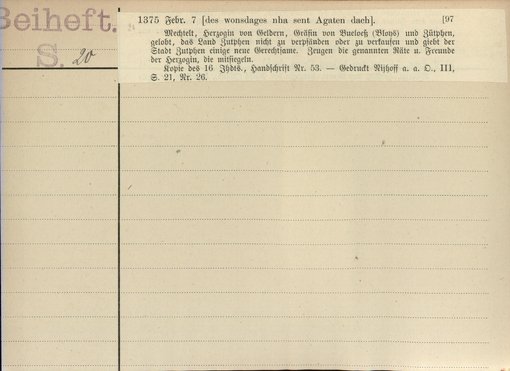 Beiheft.
S. 20
1375 Febr. 7 [des wonsdages nha sent Agaten dach]. [97
Mechtelt, Herzogin von Geldern, Gräfin van Bueloeß (Bloys) und Zütphen,
gelobt, das Land Zutphen nicht zu verpfänden oder zu verkaufen und giebt der
Stadt Zutphen einige neue Gerechtsame. Zeugen die genannten Räte u. Freunde
der Herzogin, die mitsiegeln.
Kopie des 16 Jhdts., Handschrift Nr. 53. — Gedruckt Nijhoff a. a. O., III,
S. 21, Nr. 26.